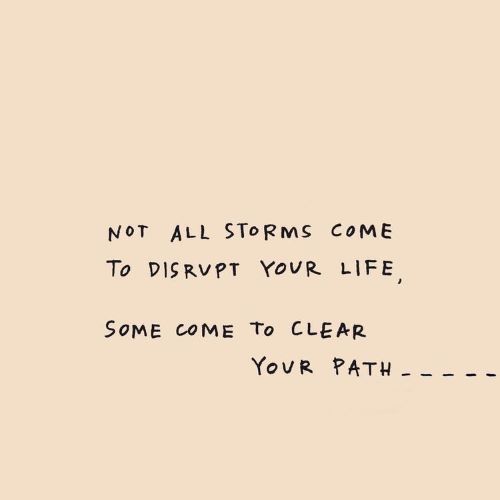 NOT ALL STORMS COME
TO DISRUPT YOUR LIFE,
SOME COME TO CLEAR
YOUR PATH _ _ _ _ _